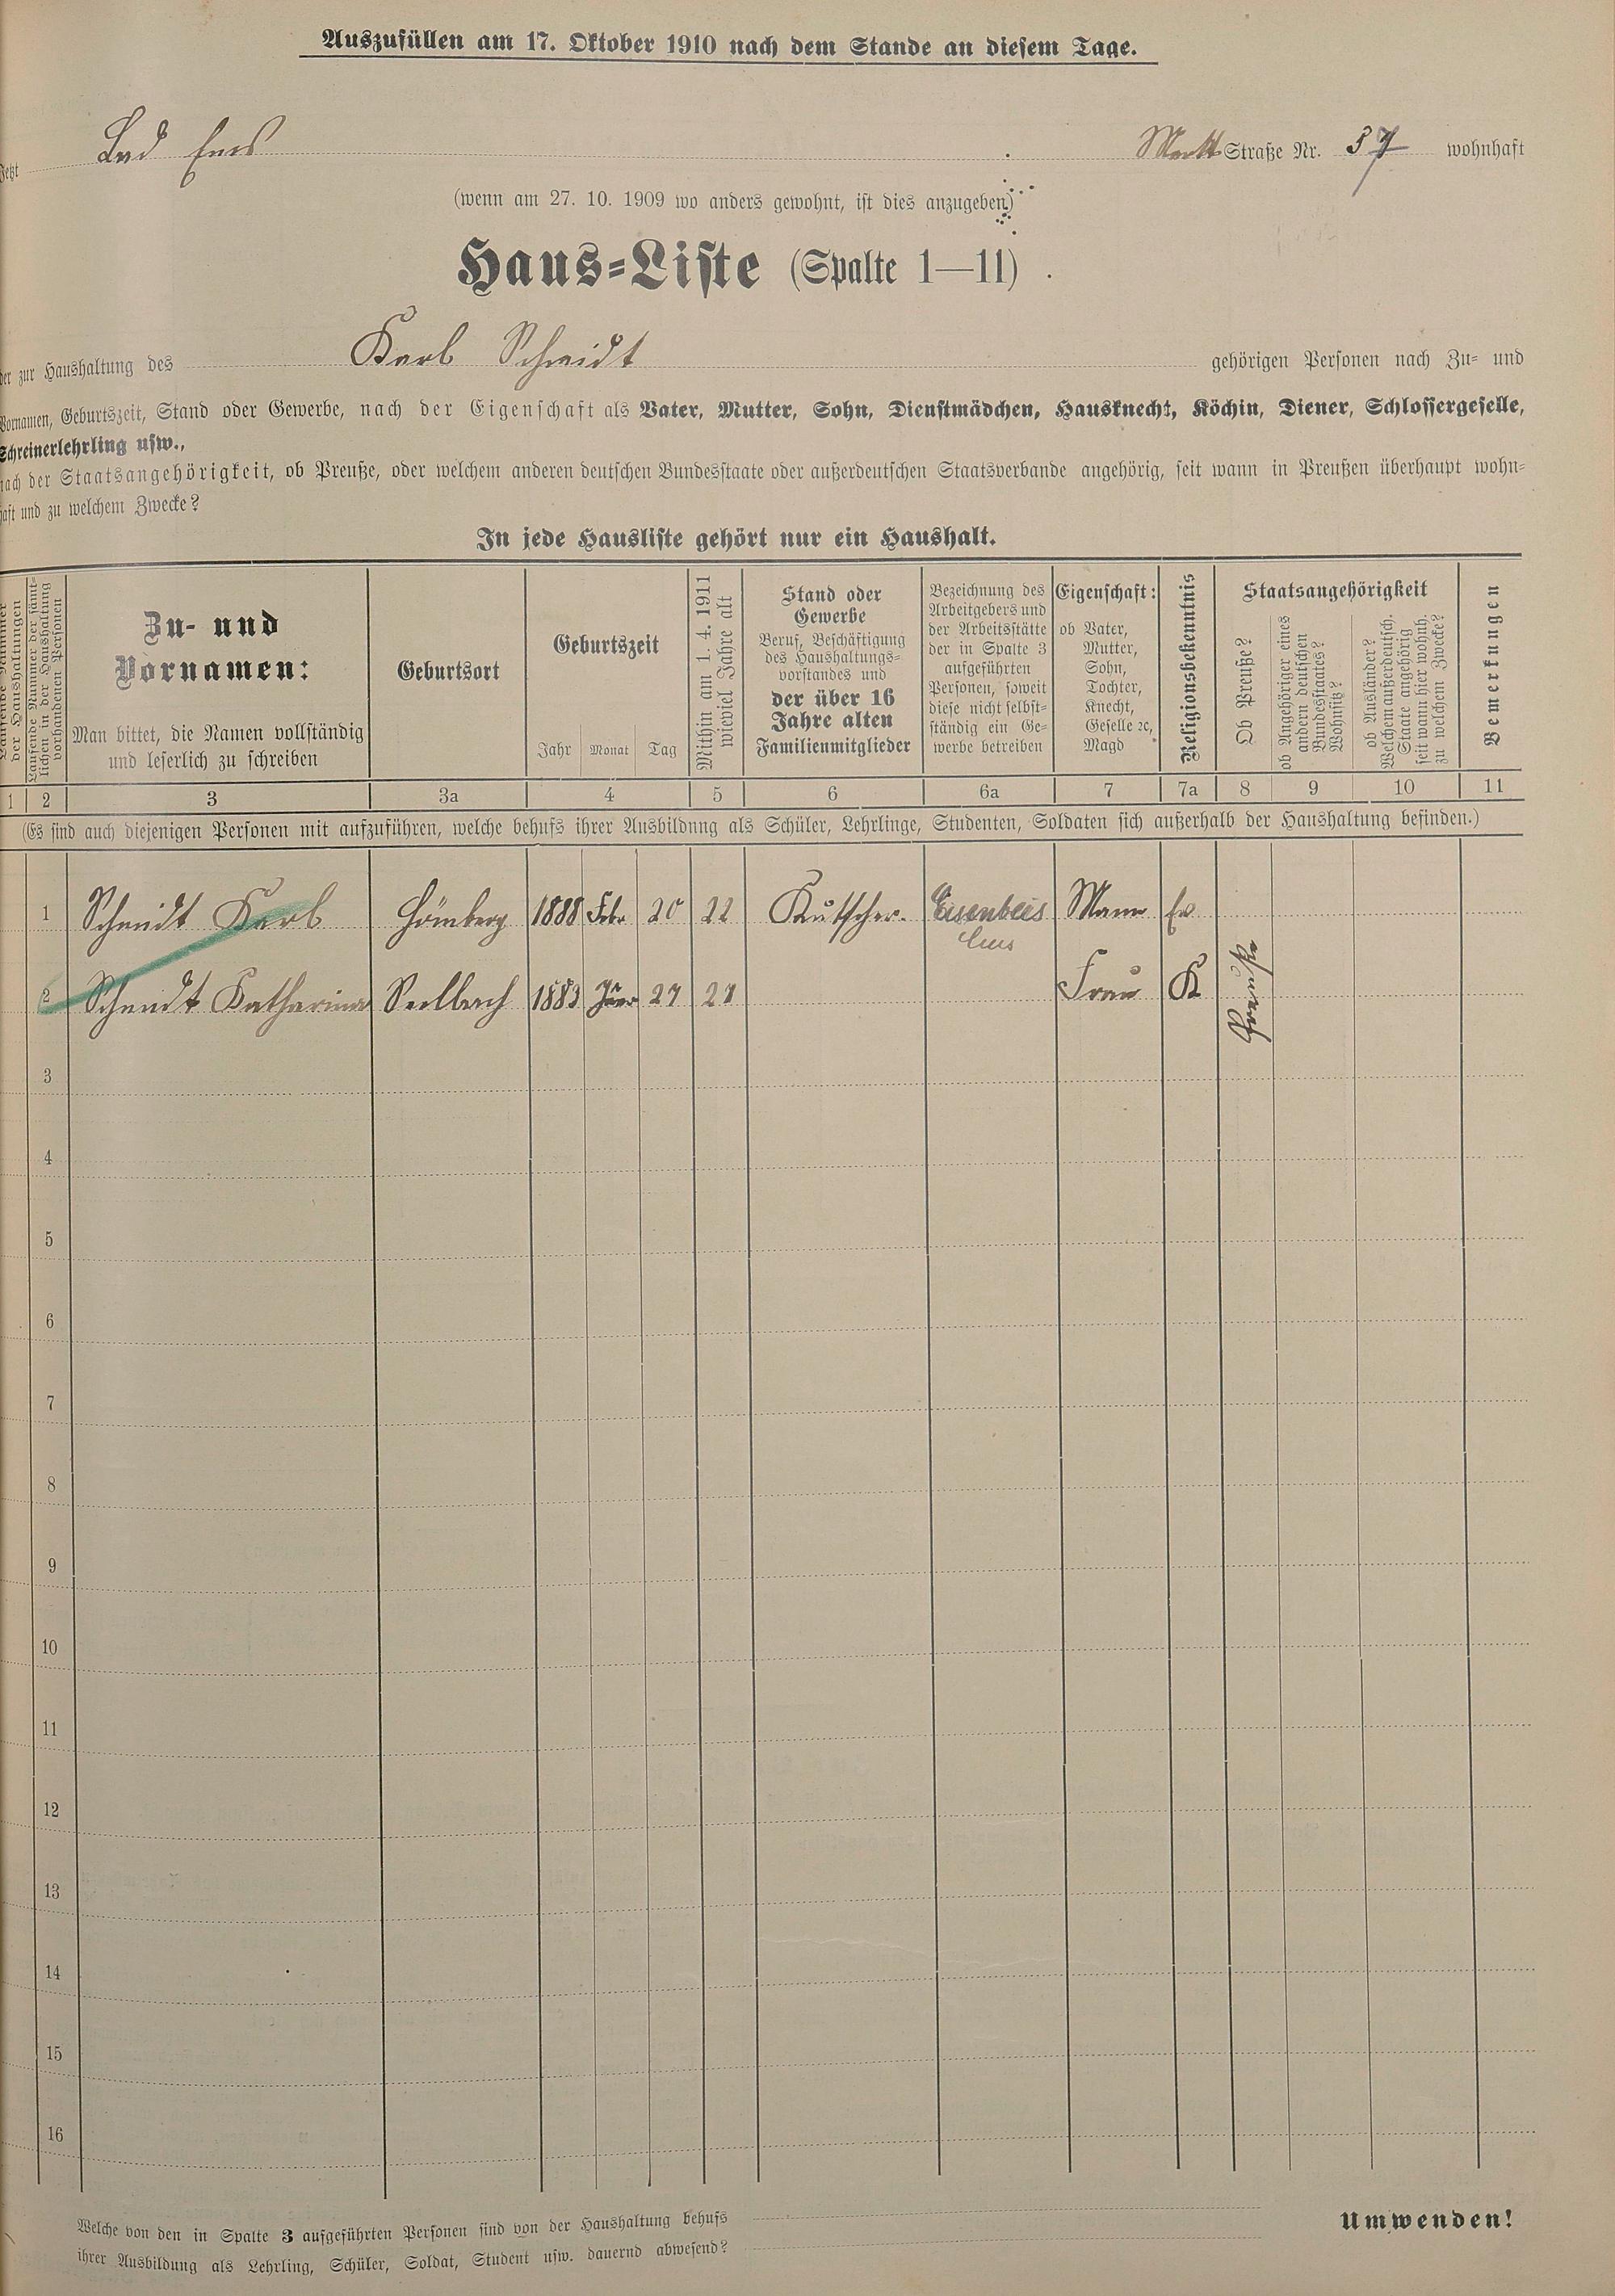 Auszufüllen am 17. Oktober 1910 nach dem Stande an diesem Tage.
Jetzt Bad Ems Markt Straße Nr. 37 wohnhaft
(wenn am 27. 10. 1909 wo anders gewohnt, ist dies anzugeben)
Haus-Liste (Spalte 1—11)
der zur Haushaltung des Karl Schmidt gehörigen Personen nach Zu- und
Vornamen, Geburtszeit, Stand oder Gewerbe, nach der Eigenschaft als Vater, Mutter, Sohn, Dienstmädchen, Hausknecht, Köchin, Diener, Schlossergeselle,
Schreinerlehrling usw.,
nach der Staatsangehörigkeit, ob Preuße, oder welchem anderen deutschen Bundesstaate oder außerdeutschen Staatsverbande angehörig, seit wann in Preußen überhaupt wohn-
haft und zu welchem Zwecke?
In jede Hausliste gehört nur ein Haushalt.
Laufende Nummer
der Haushaltungen
Laufende Nummer der sämt-
lichen in der Haushaltung
vorhandenen Personen
Zu- und
Vornamen:
Man bittet, die Namen vollständig
und leserlich zu schreiben
Geburtsort
Geburtszeit
Jahr Monat Tag
Mithin am 1. 4. 1911
wieviel Jahre alt
Stand oder
Gewerbe
Beruf, Beschäftigung
des Haushaltungs-
vorstandes und
der über 16
Jahre alten
Familienmitglieder
Bezeichnung des
Arbeitgebers und
der Arbeitsstätte
der in Spalte 3
aufgeführten
Personen, soweit
diese nicht selbst-
ständig ein Ge-
werbe betreiben
Eigenschaft:
ob Vater,
Mutter,
Sohn,
Tochter,
Knecht,
Geselle ꝛc,
Magd
Religionsbekenntnis
Staatsangehörigkeit
Ob Preuße?
ob Angehöriger eines
andern deutschen
Bundesstaates?
Wohnsitz?
ob Ausländer?
Welchem außerdeutsch.
Staate angehörig
seit wann hier wohnh.
zu welchem Zwecke?
Bemerkungen
1 2 3 3a 4 5 6 6a 7 7a 8 9 10 11
(Es sind auch diejenigen Personen mit aufzuführen, welche behufs ihrer Ausbildung als Schüler, Lehrlinge, Studenten, Soldaten sich außerhalb der Haushaltung befinden.)
1 Schmidt Karl Hömberg 1888 Febr 20 22 Kutscher. Eisenbeis Mann Ev
Ems
2 Schmidt Katharina Seelbach 1883 27 27 Frau K
3
4
5
6
7
8
9
10
11
12
13
14
15
16
Welche von den in Spalte 3 aufgeführten Personen sind von der Haushaltung behufs
ihrer Ausbildung als Lehrling, Schüler, Soldat, Student usw. dauernd abwesend?
Umwenden!